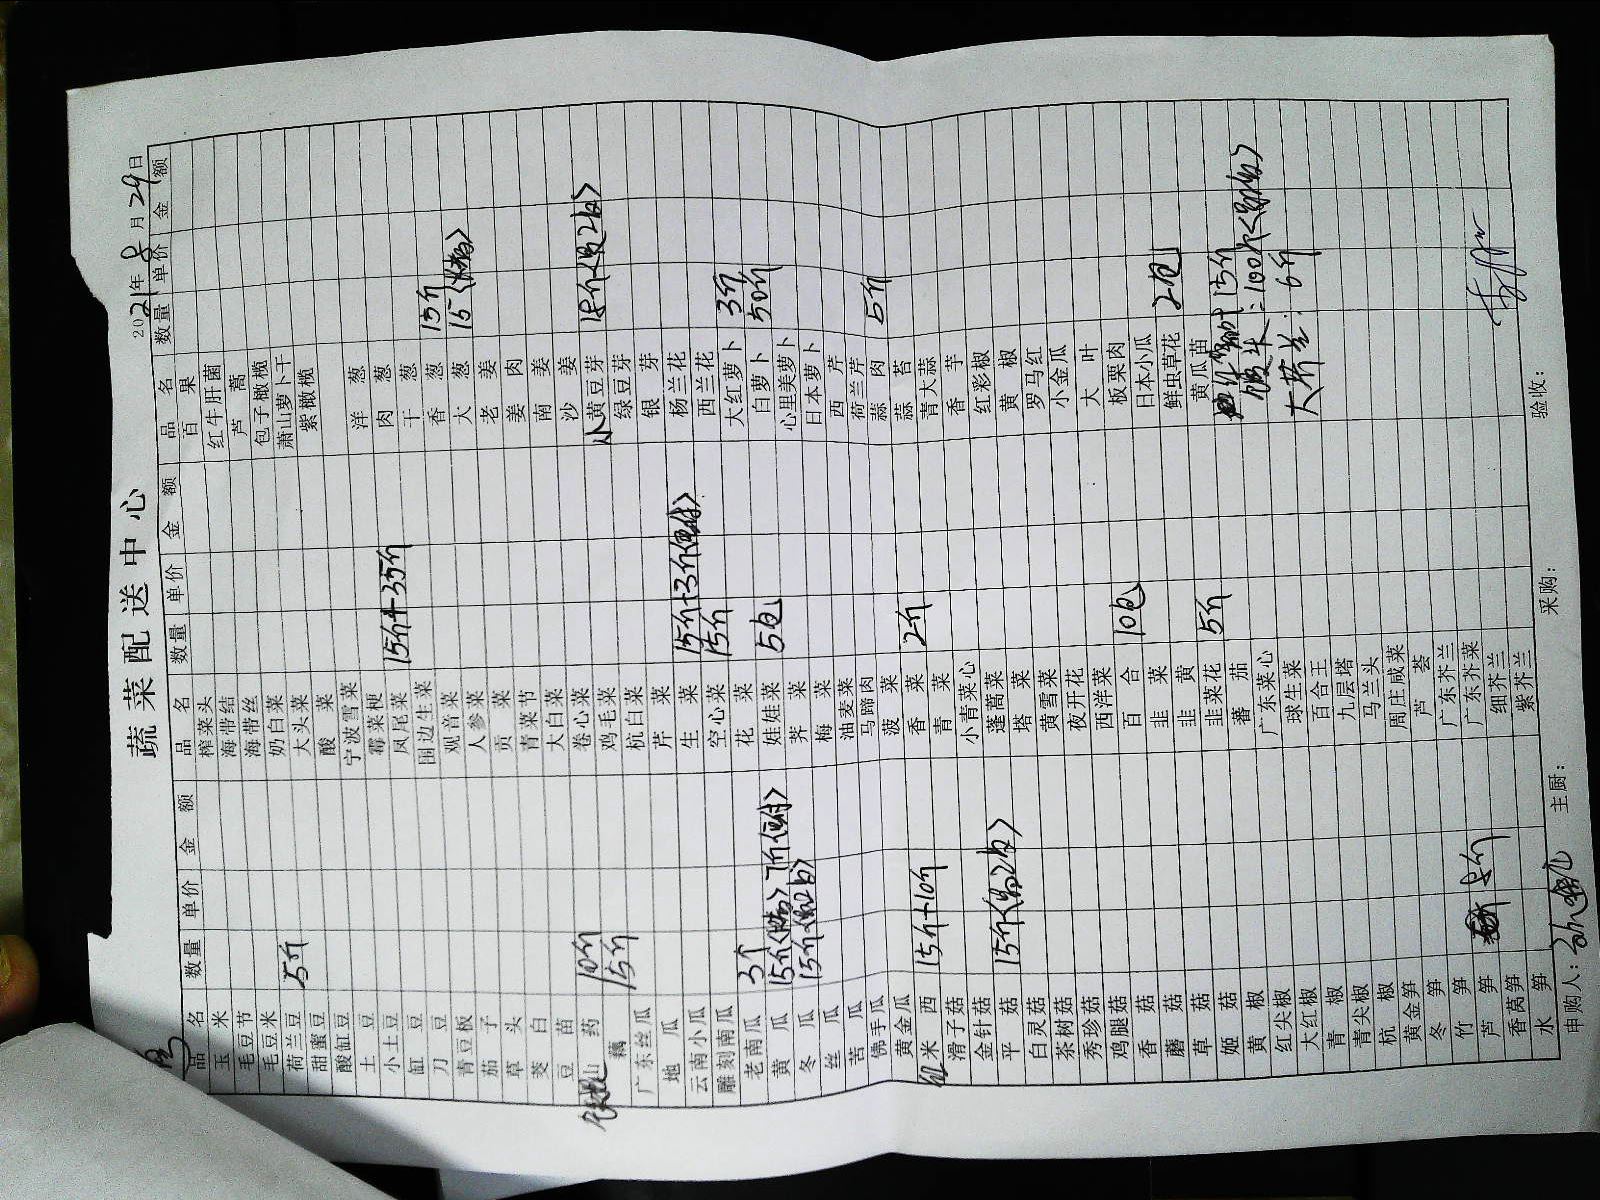 蔬菜配送中心
2021年8月29日
品名 数量 单价 金额 品名 数量 单价 金额 品名 数量 单价 金额
玉米 榨菜头 百果
毛豆节 海带结 红牛肝菌
毛豆米 海带丝 芦蒿
荷兰豆 5斤 奶白菜 包子橄榄
甜蜜豆 大头菜 萧山萝卜干
酸缸豆 酸菜 紫橄榄
土豆 宁波雪菜
小土豆 霉菜梗 洋葱
缸豆 凤尾菜 15斤+35斤 肉葱
刀豆 围边生菜 干葱
青豆板 观音菜 香葱 15斤
茄子 人参菜 大葱 15
草头 贡菜 老姜
茭白 青菜节 姜肉
豆苗 大白菜 南姜
山药 10斤 卷心菜 沙姜
藕 15斤 鸡毛菜 小黄豆芽
广东丝瓜 杭白菜 绿豆芽
地瓜 芹菜 银芽
云南小瓜 生菜 15斤+3斤 杨兰花
雕刻南瓜 空心菜 15斤 西兰花
老南瓜 3个 花菜 大红萝卜 3斤
黄瓜 15斤 7斤 娃娃菜 5包 白萝卜 50斤
冬瓜 15斤 荠菜 心里美萝卜
丝瓜 梅菜 日本萝卜
苦瓜 油麦菜 西芹
佛手瓜 马蹄肉 荷兰芹
黄金瓜 菠菜 蒜肉 5斤
米西 15斤+10斤 香菜 2斤 蒜苔
滑子菇 青菜 青大蒜
金针菇 小青菜心 香芋
平菇 15斤 蓬蒿菜 红彩椒
白灵菇 塔菜 黄椒
茶树菇 黄雪菜 罗马红
秀珍菇 夜开花 小金瓜
鸡腿菇 西洋菜 大叶
香菇 百合 10包 板栗肉
蘑菇 韭菜 日本小瓜
草菇 韭黄 鲜虫草花 2包
姬菇 韭菜花 5斤 黄瓜苗
黄椒 蕃茄 15斤
红尖椒 广东菜心 100只
大红椒 球生菜 大芥兰：6斤
青椒 百合王
青尖椒 九层塔
杭椒 马兰头
黄金笋 周庄咸菜
冬笋 芦荟
竹笋 广东芥兰
芦笋 5斤 广东芥菜
香莴笋 细芥兰
水笋 紫芥兰
申购人： 主厨： 采购： 验收：